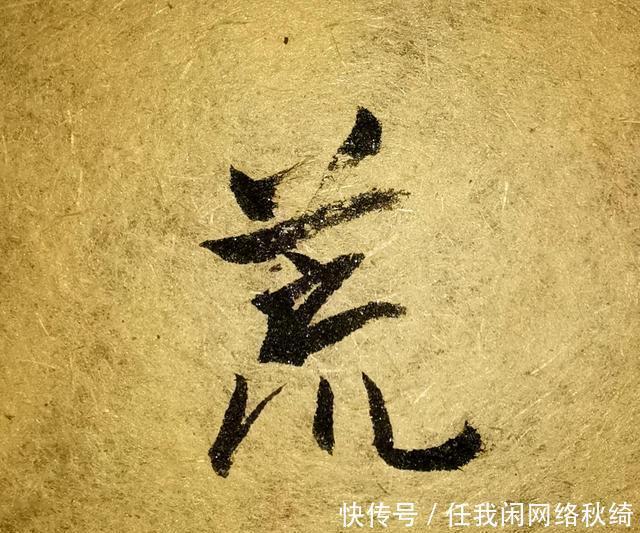 荒
快传号/任我闲网络秋绮